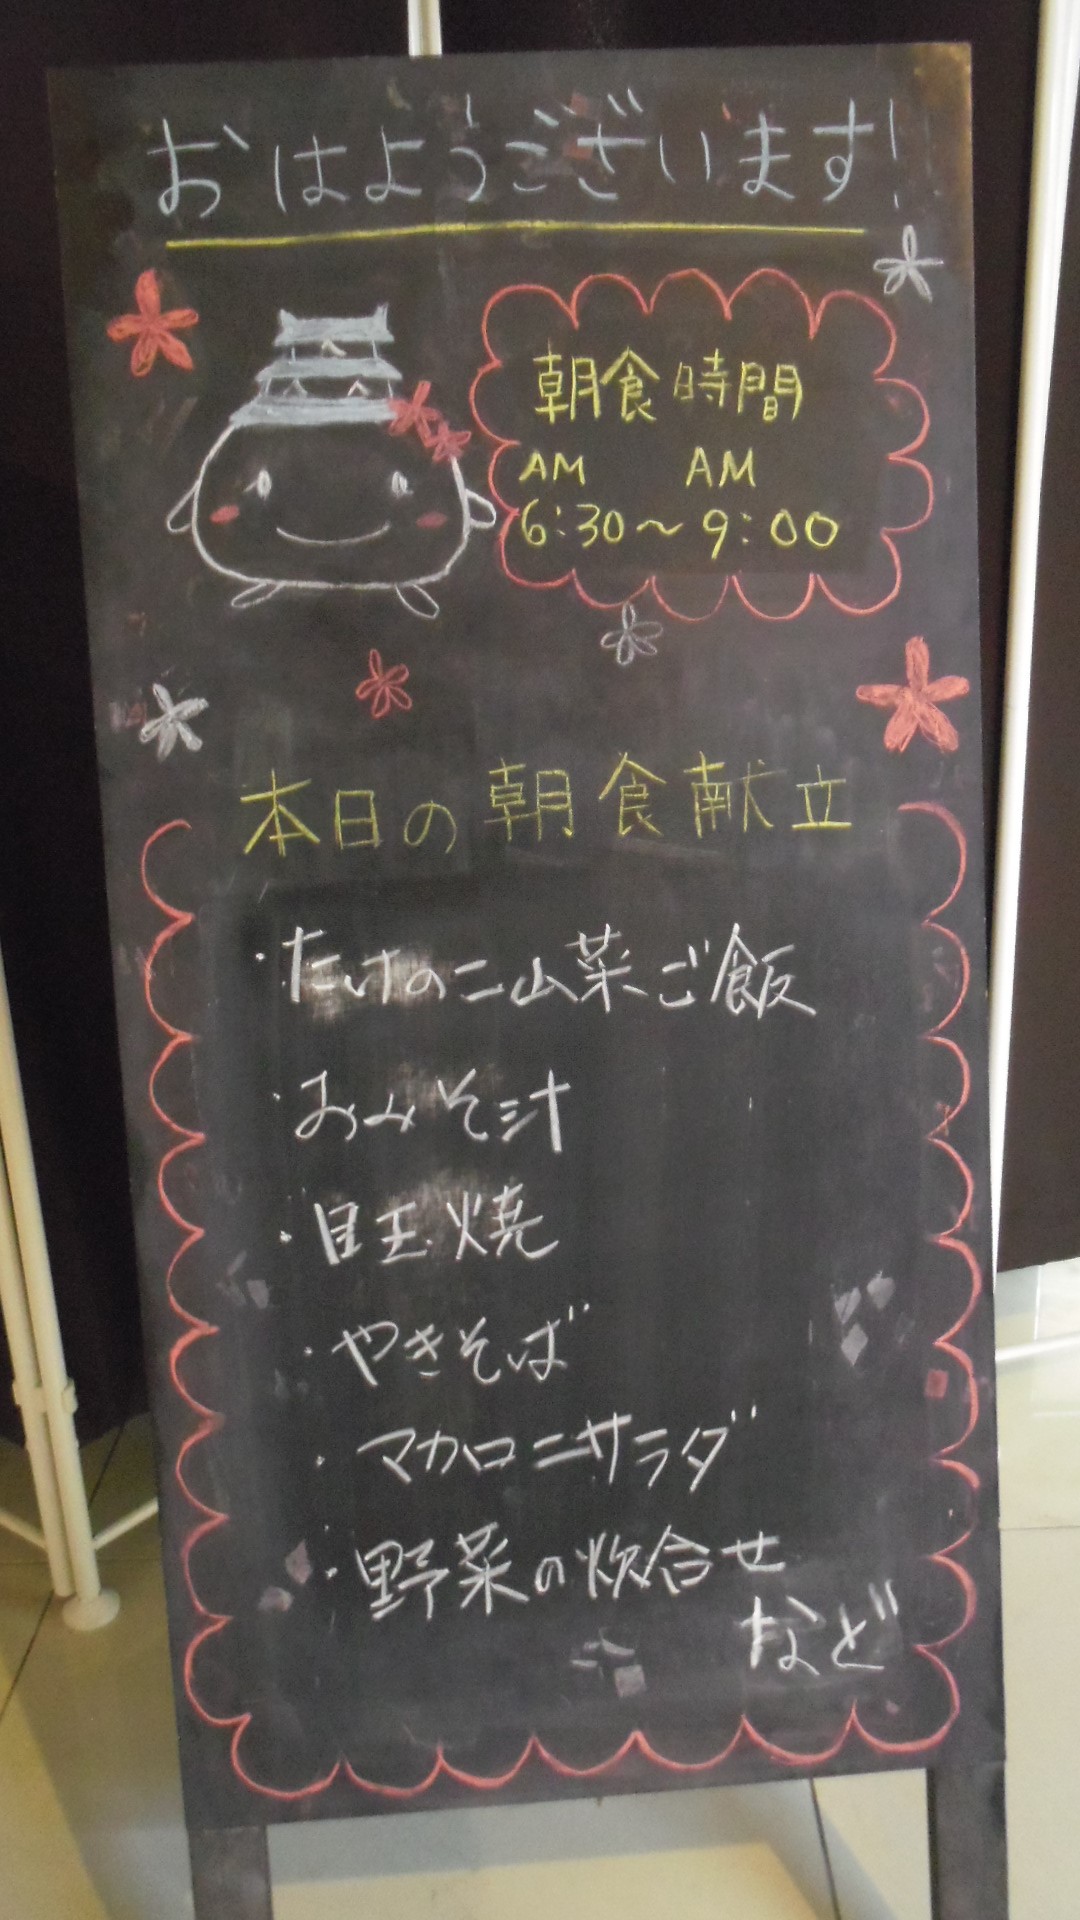 おはようございます!
朝食時間
AM AM
6:30～9:00
本日の朝食献立
・たけのこ山菜ご飯
・おみそ汁
・目玉焼
・やきそば
・マカロニサラダ
・野菜の炊合せ
など